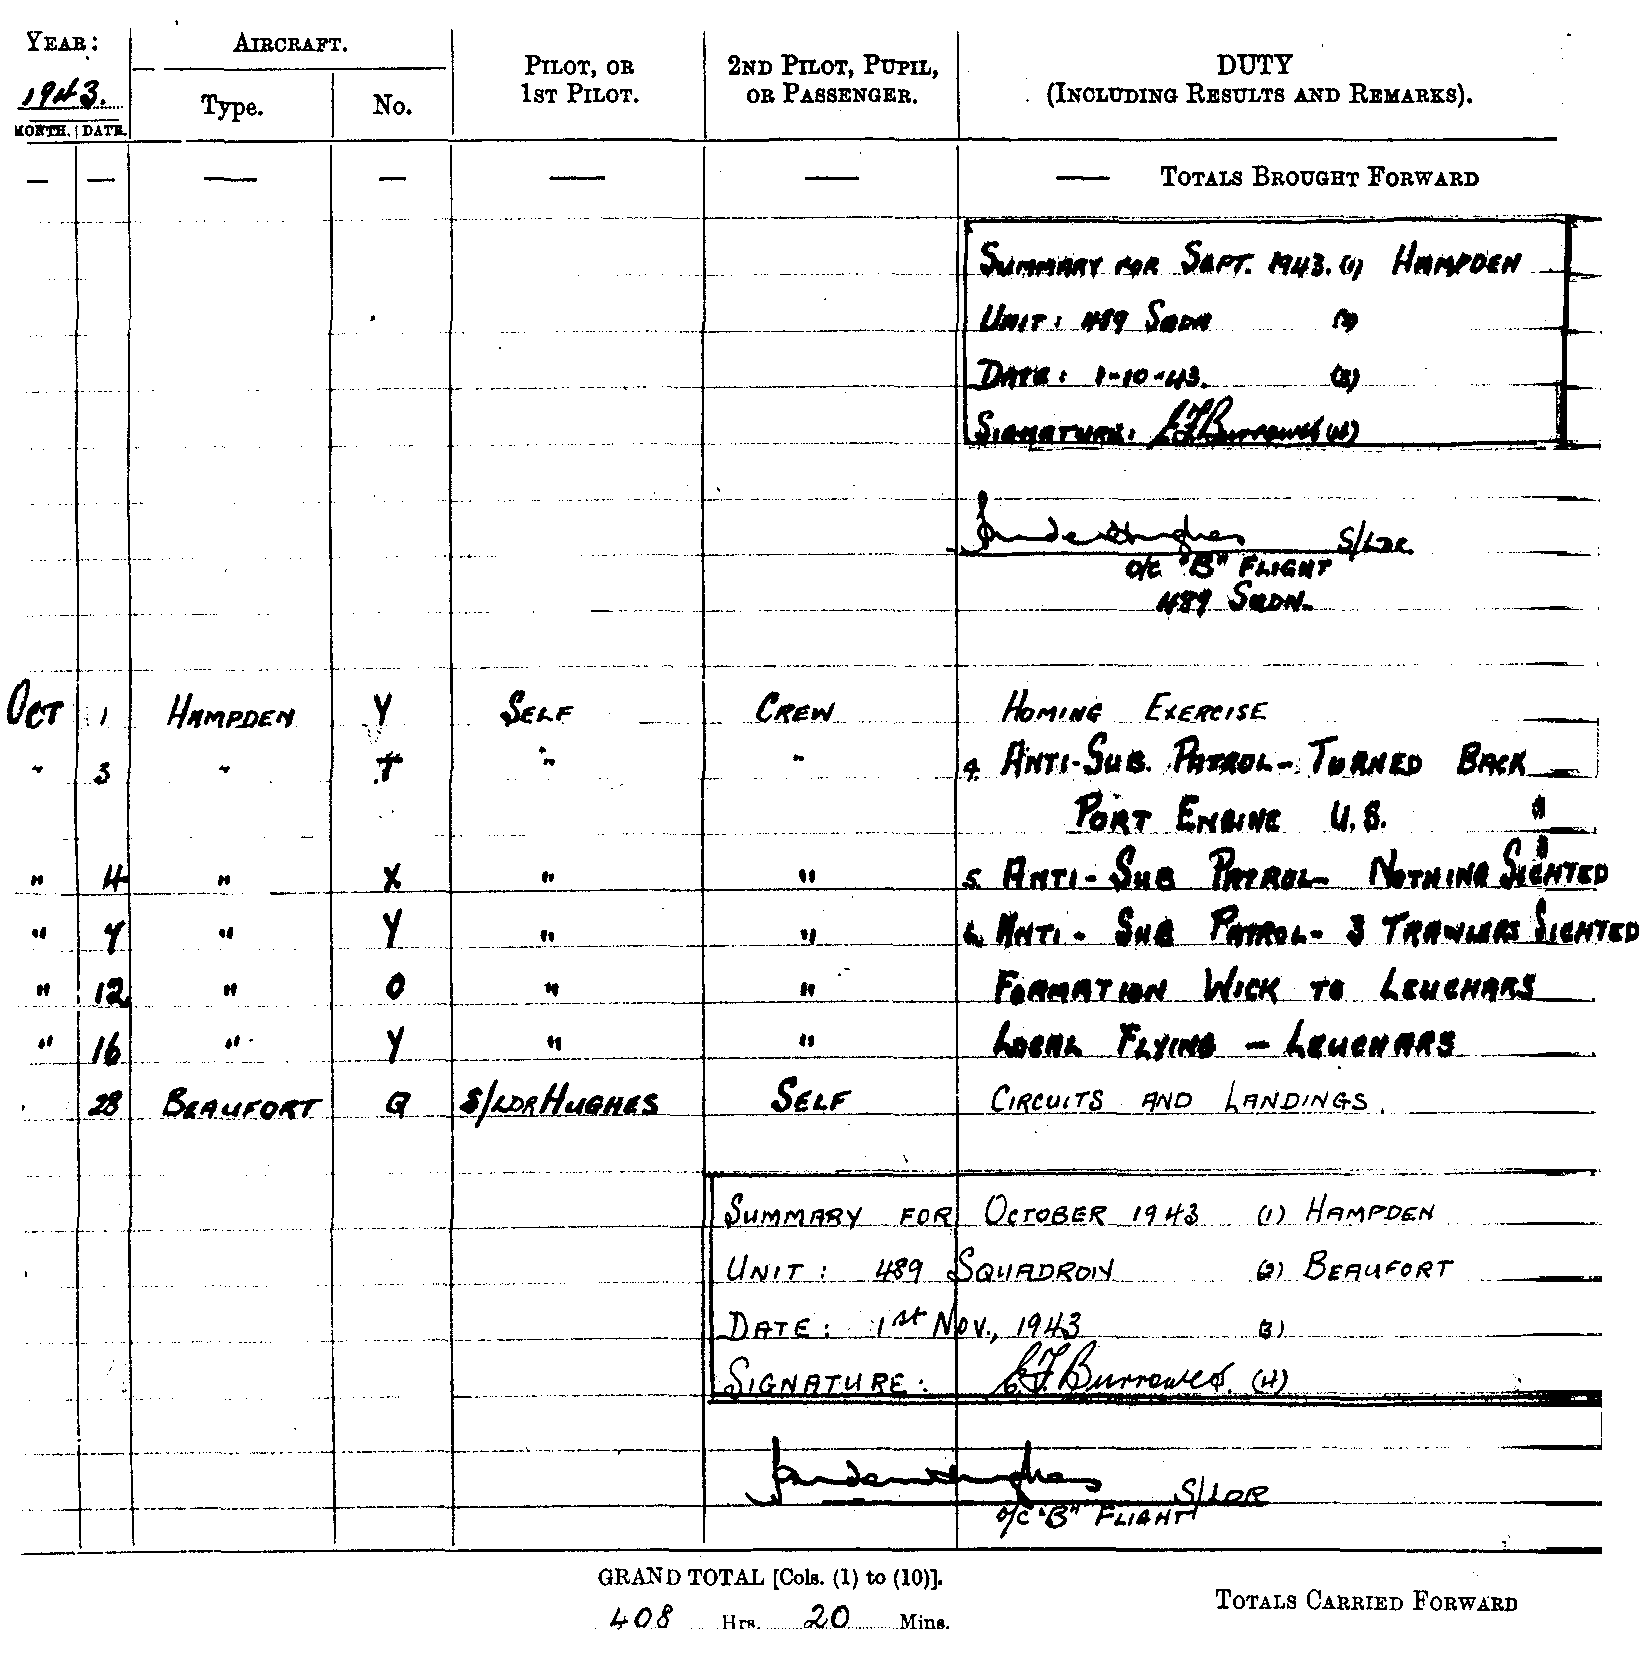 YEAR: AIRCRAFT. PILOT, OR 1ST PILOT. 2ND PILOT, PUPIL, OR PASSENGER. DUTY (INCLUDING RESULTS AND REMARKS).
1943. Type. No.
MONTH. DATE.
— — — — — — — TOTALS BROUGHT FORWARD
SUMMARY FOR SEPT. 1943. (1) HAMPDEN
UNIT: 489 SQDN (2)
DATE: 1-10-43. (3)
SIGNATURE: Burrowes (4)
Hughes S/LDR.
O/C "B" FLIGHT
489 SQDN.
OCT 1 HAMPDEN Y SELF CREW HOMING EXERCISE
" 3 " T " " 4. ANTI-SUB. PATROL - TURNED BACK
PORT ENGINE U.S.
" 4 " X " " 5. ANTI-SUB PATROL - NOTHING SIGHTED
" 7 " Y " " 6. ANTI-SUB PATROL - 3 TRAWLERS SIGHTED
" 12 " O " " FORMATION WICK TO LEUCHARS
" 16 " Y " " LOCAL FLYING - LEUCHARS
28 BEAUFORT Q S/LDR HUGHES SELF CIRCUITS AND LANDINGS.
SUMMARY FOR OCTOBER 1943 (1) HAMPDEN
UNIT: 489 SQUADRON (2) BEAUFORT
DATE: 1st NOV., 1943 (3)
SIGNATURE: Burrowes. (4)
Hughes S/LDR
O/C "B" FLIGHT
GRAND TOTAL [Cols. (1) to (10)].
408 Hrs. 20 Mins.
TOTALS CARRIED FORWARD